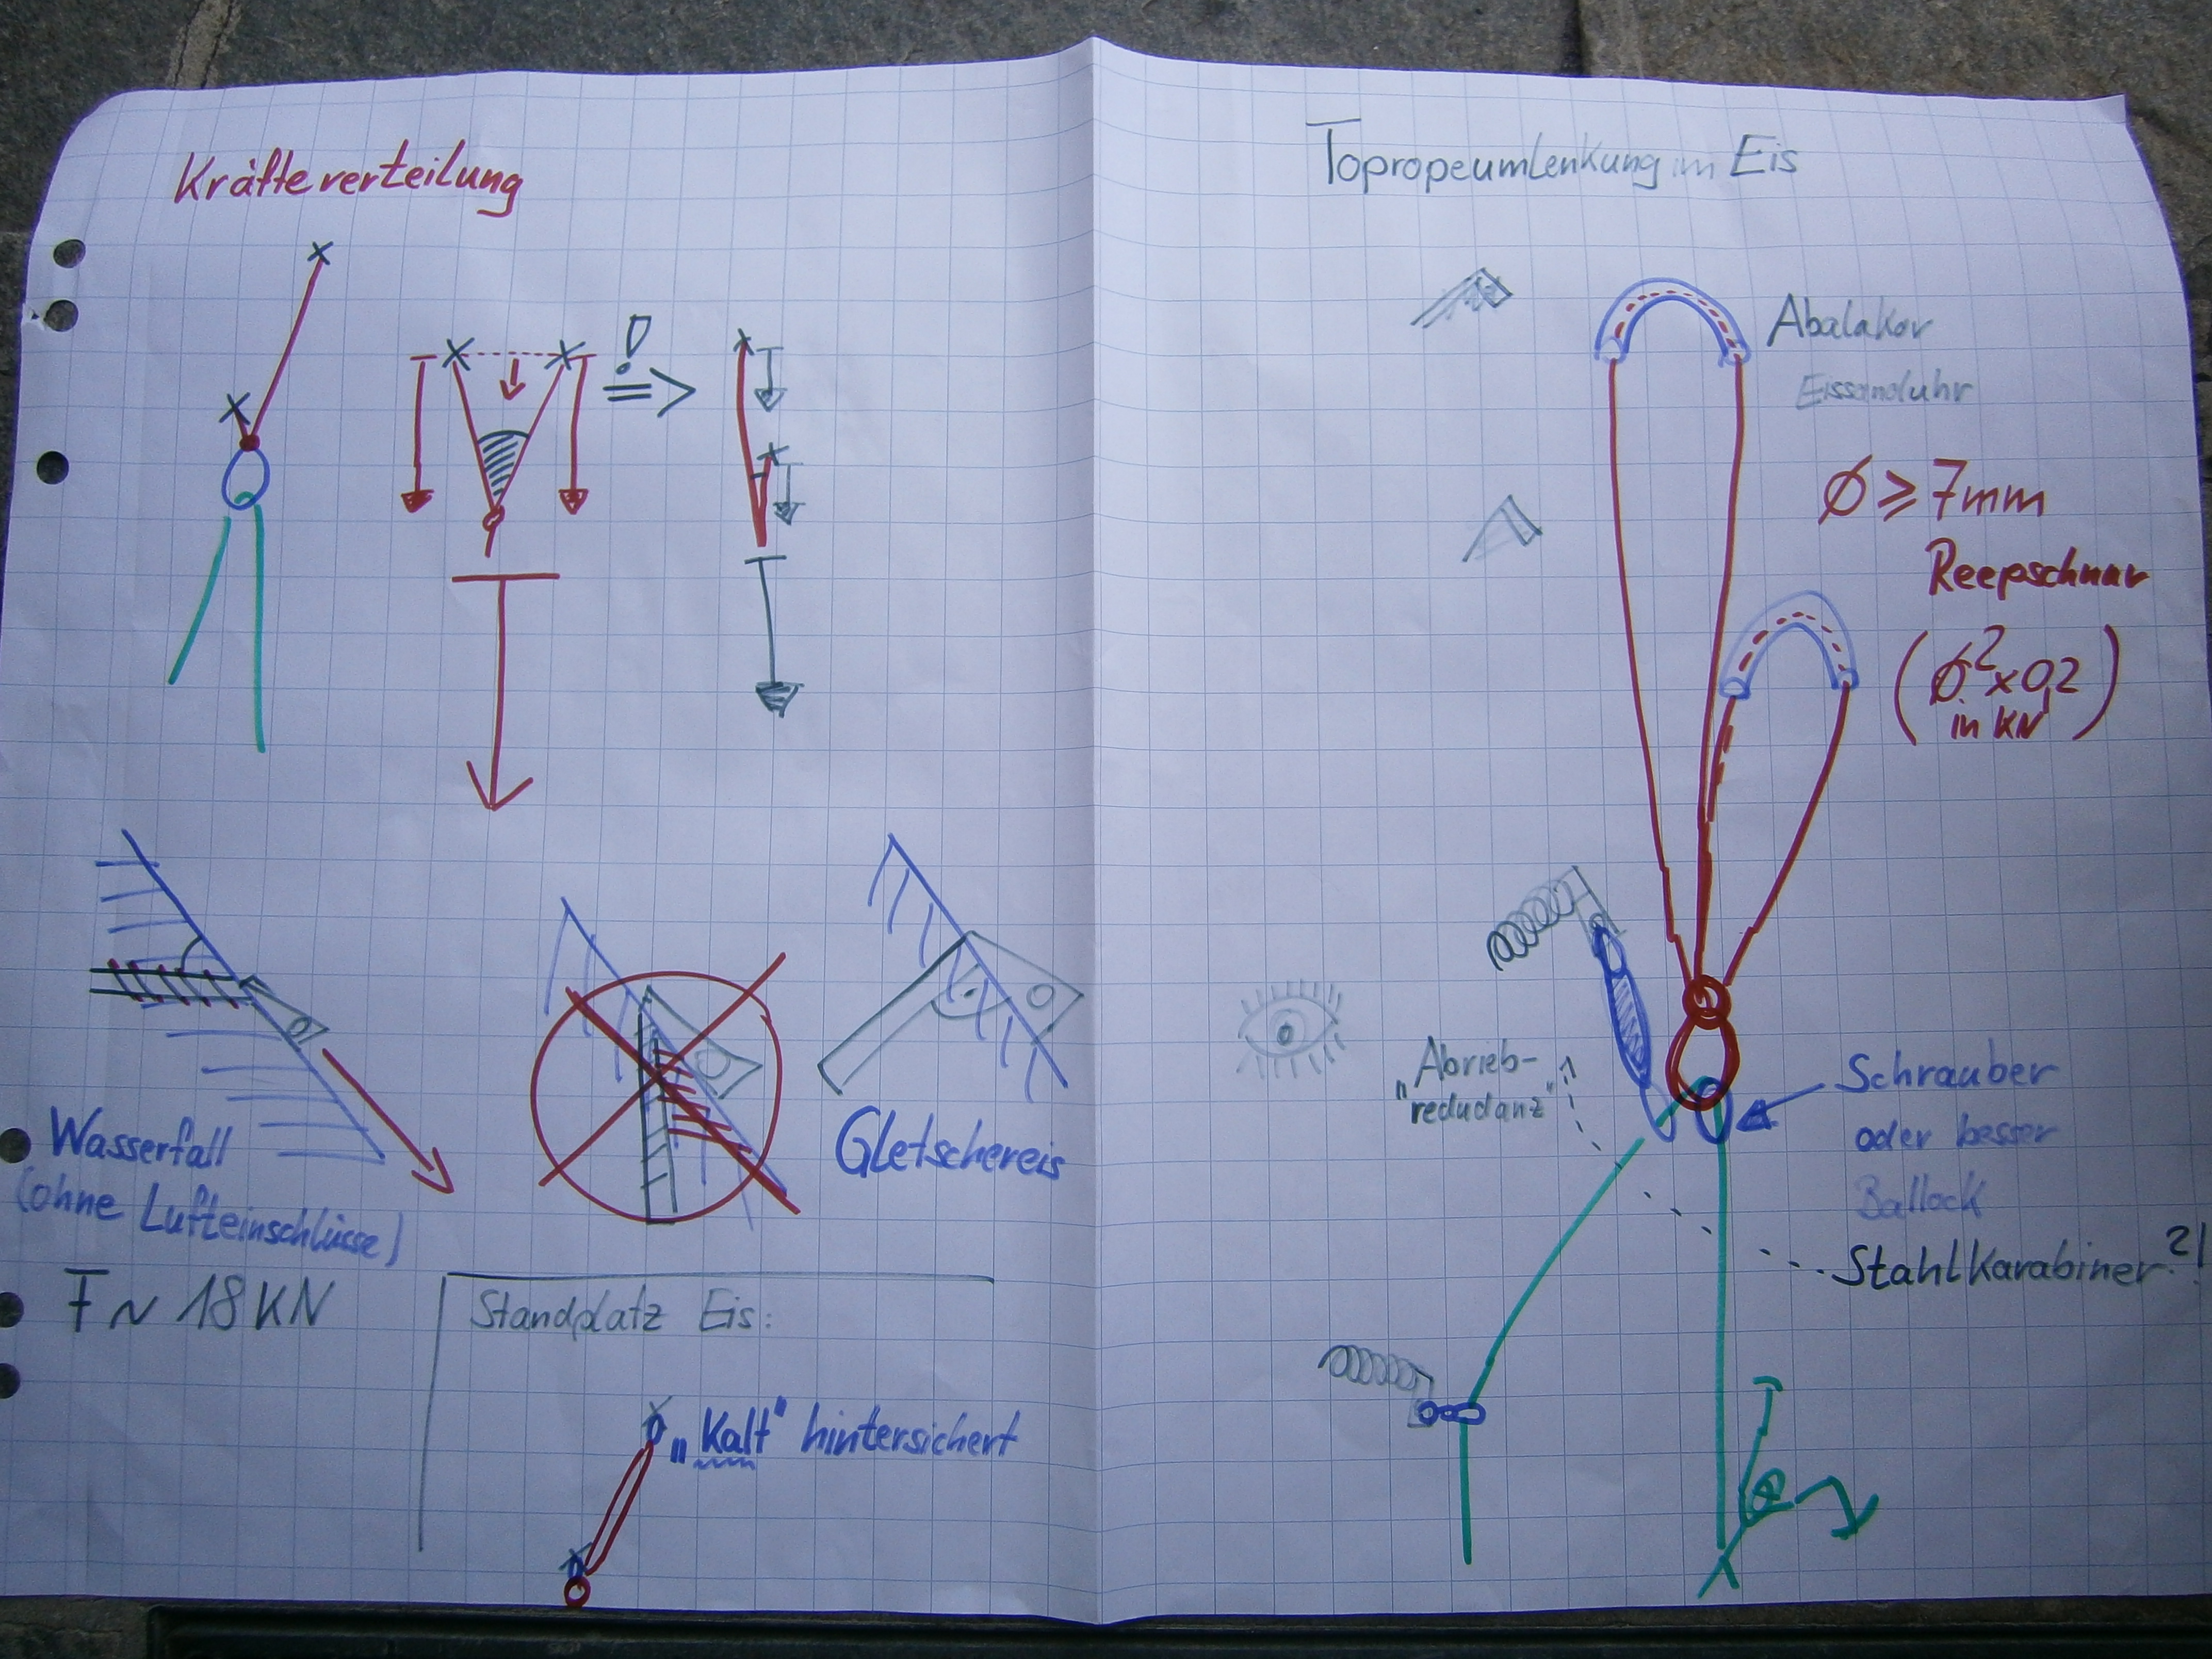 Kräfteverteilung
!
=>
Wasserfall
(ohne Lufteinschlüsse)
F ~ 18 KN
Gletschereis
Standplatz Eis:
„Kalt" hintersichert
Topropeumlenkung im Eis
Abalakov
Eissanduhr
Ø ≥ 7mm
Reepschnur
(Ø² x 0,2
in KN)
Abrieb-
"redudanz"
Schrauber
oder besser
Ballock
Stahlkarabiner?!